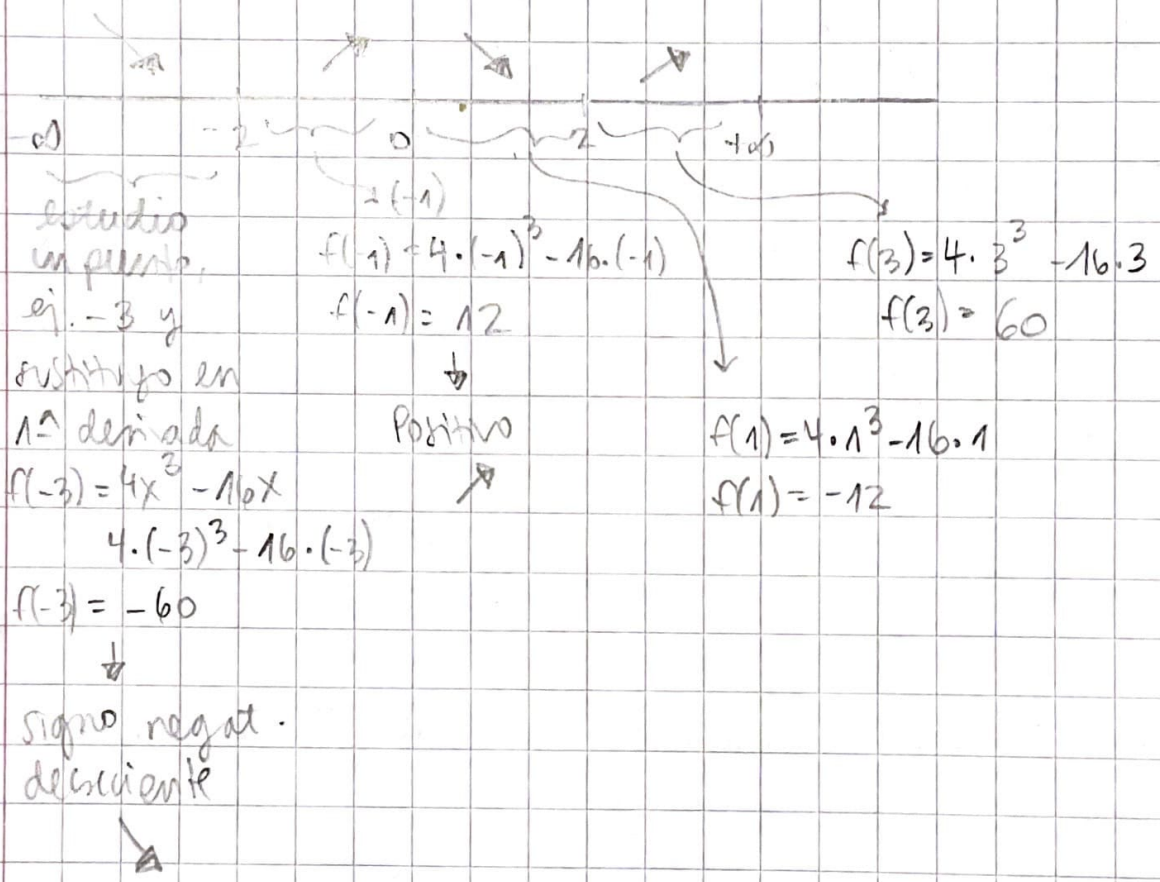 -∞ -2 0 2 +∞
estudio
un punto,
ej. -3 y
sustituyo en
1ª derivada
f(-3) = 4x³ - 16x
4·(-3)³ - 16·(-3)
f(-3) = -60
↓
signo negat.
decreciente
(-1)
f(-1) = 4·(-1)³ - 16·(-1)
f(-1) = 12
↓
Positivo
f(1) = 4·1³ - 16·1
f(1) = -12
f(3) = 4·3³ - 16·3
f(3) = 60